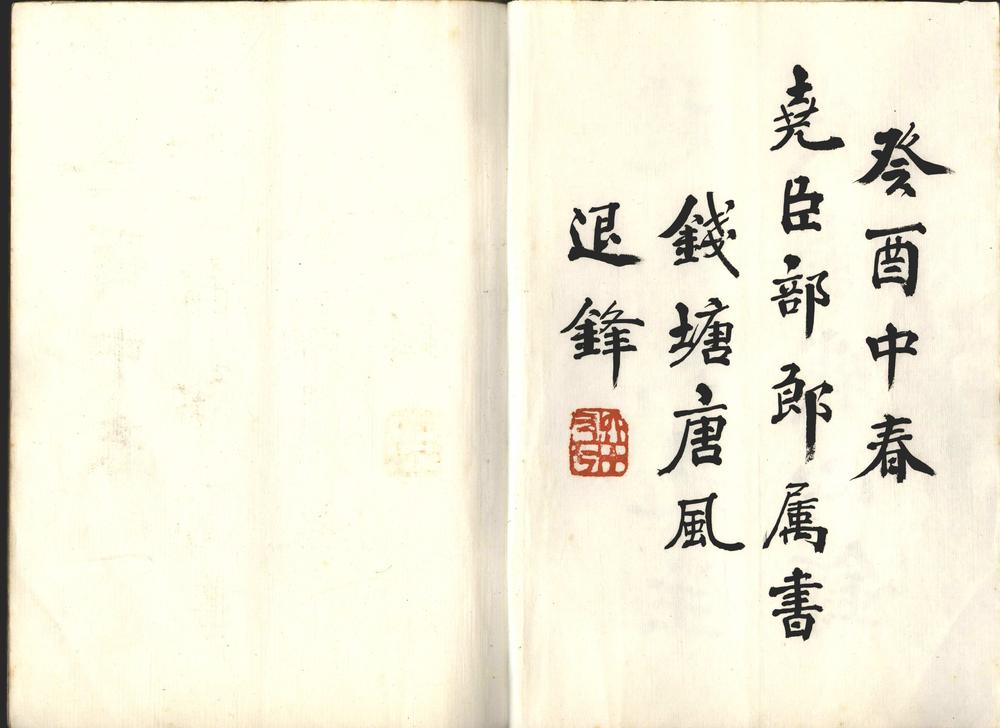 癸酉中春
堯臣部郎属書
錢塘唐風
退鋒